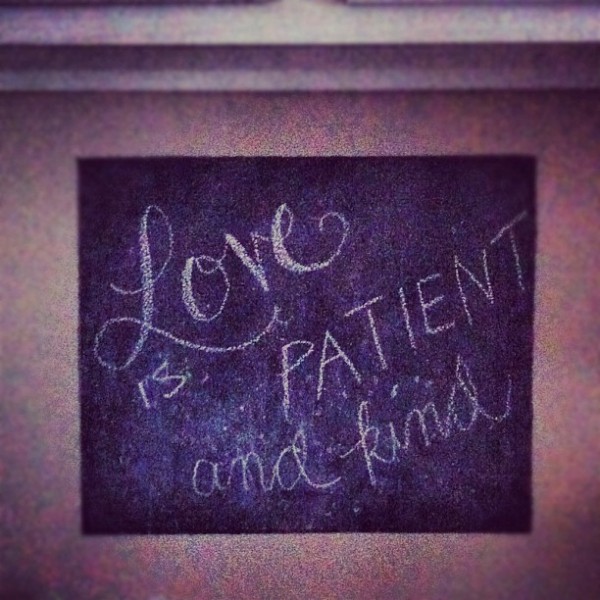 Love
is PATIENT
and kind